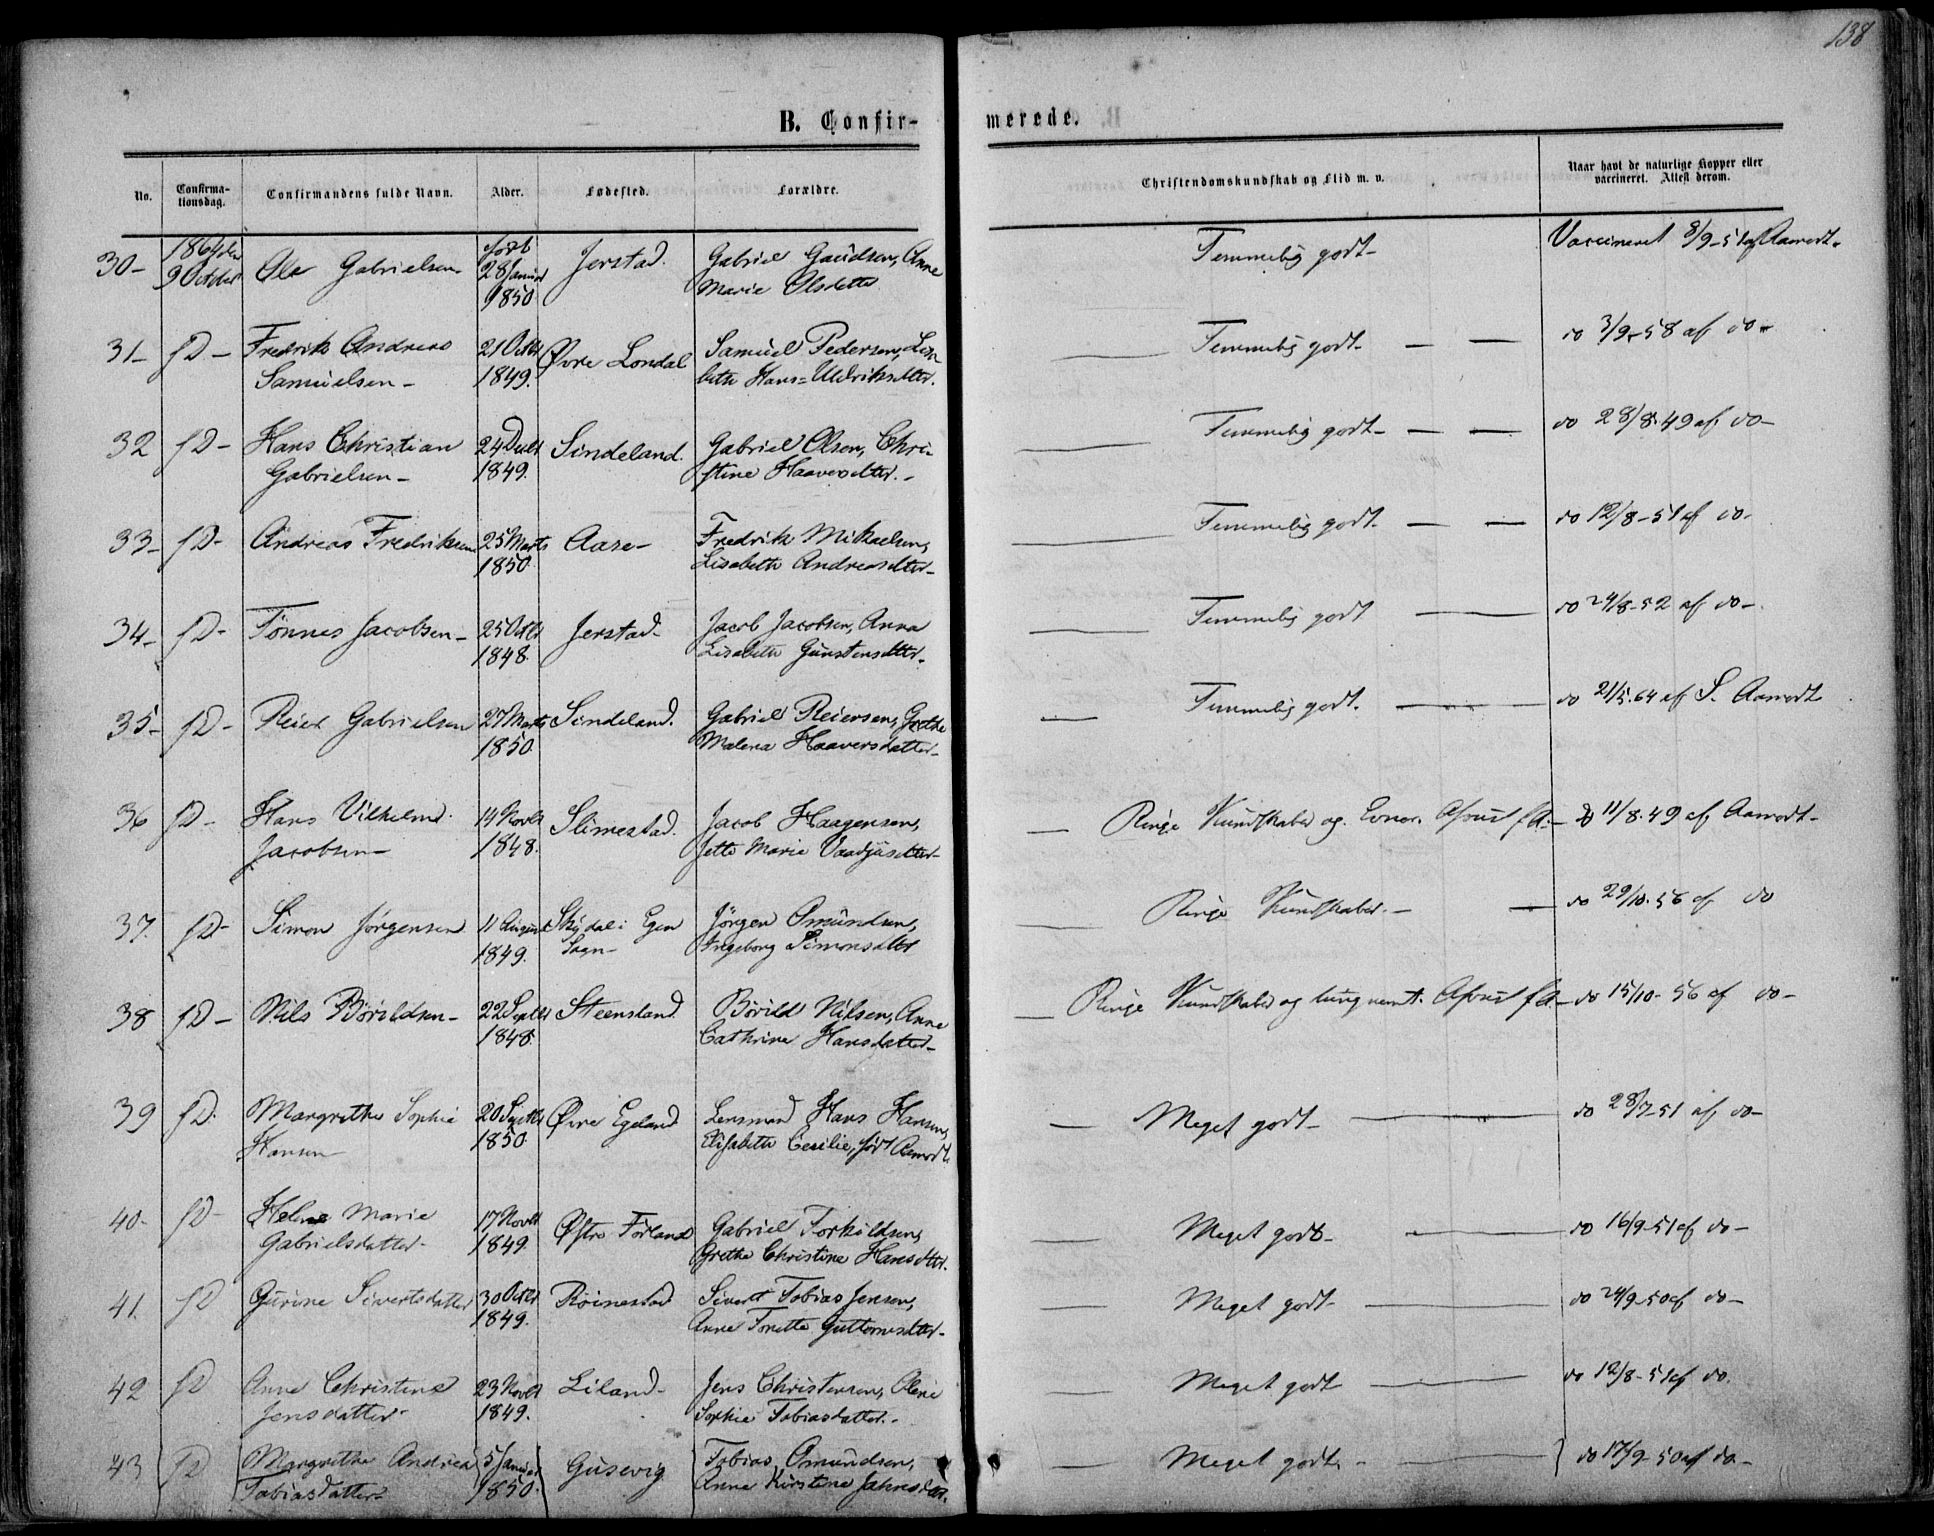 138
B. Confirmerede.
No. Confirmationsdag. Confirmandens fulde Navn. Alder. Fødested. Forældre. Christendomskundskab og Flid m. v. Naar havt de naturlige Kopper eller vaccineret. Attest derom.
30- 1864 den 9 Octber Ole Gabrielsen- født 28 Januar 1850 Jerstad. Gabriel Gaudsen, Anne Marie Olsdatter Temmelig godt- Vaccineret 8/9-51 af Aamodt.
31- sD- Fredrik Andreas Samuelsen- 21 Octbr 1849. Øvre Londal Samuel Pedersen, Lisabeth Hans=Uldriksdtter. Temmelig godt- do 3/9-58 af do-
32 sD- Hans Christian Gabrielsen- 24 Decbr 1849. Sindeland. Gabriel Olsen, Christine Haaversdtter.- Temmelig godt- do 28/8.49 af do-
33- sD- Andreas Fredriksen 25 Marts 1850 Aase- Fredrik Mikaelsen, Lisabeth Andreasdtter- Temmelig godt- do 12/8-51 af do-
34- sD- Tønnes Jacobsen- 25 Octbr 1848. Jerstad- Jacob Jacobsen, Anna Lisabeth Gunstensdtter- Temmelig godt do 24/8-52 af do-
35- sD- Reier Gabrielsen 27 Marts 1850 Sindeland. Gabriel Reiersen, Grethe Malena Haaversdatter- Temmelig godt. do 21/5.64 af S. Aamodt
36 sD- Hans Vilhelm Jacobsen- 14 Novbr 1848. Slimestad. Jacob Haagensen, Jette Marie dtter- Ringe Kundskaber og do 11/8.49 af Aamodt-
37. sD- Simon Jørgensen 11 August 1849. i Egen Sogn- Jörgen Omundsen, Ingeborg Simonsdtter Ringe Kundskaber.- do 29/10.56 af do
38 sD- Nils Børildsen- 22 Septbr 1848. Steensland. Børild Nilsen, Anne Cathrine Hansdatter- Ringe Kundskaber og tungnemt. do 15/10-56 af do-
39 sD. Margrethe Sophie Hansen- 20 Septbr 1850 Øvre Egeland Lensmand Hans Hansen, Elisabeth Cecilie, født Aamodt. Meget godt- do 28/7-51 af do-
40- sD- Helene Marie Gabrielsdatter- 17 Novbr 1849. Østre Förland Gabriel Torkildsen, Grethe Christine Hansdtter. Meget godt- do 16/9-51 af do-
41. sD Gurine Sivertsdatter 30 Octbr 1849. Röinestad Sivert Tobias Jensen, Anne Tonette Guttormsdtter- Meget godt- do 24/9-50 af do-
42 sD Anne Christine Jensdatter- 23 Novbr 1849. Liland- Jens Christensen, Olene Sophie Tobiasdatter.- Meget godt do 12/8-51 af do.
43 sD Margrethe Andrea Tobiasdatter- 5 Januar 1850. Gusevig Tobias Omundsen, Anne Kirstine Meget godt- do 17/9-50 af do-